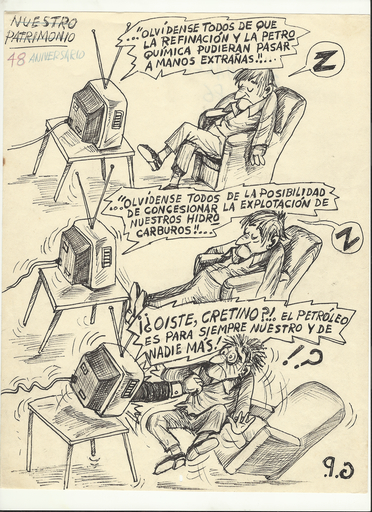 NUESTRO
PATRIMONIO
48 ANIVERSARIO
..."OLVÍDENSE TODOS DE QUE
LA REFINACIÓN Y LA PETRO
QUÍMICA PUDIERAN PASAR
A MANOS EXTRAÑAS!!...
Z
..."OLVÍDENSE TODOS DE LA POSIBILIDAD
DE CONCESIONAR LA EXPLOTACIÓN DE
NUESTROS HIDRO
CARBUROS!!"...
Z
¡¿OISTE, CRETINO?!.. EL PETRÓLEO
ES PARA SIEMPRE NUESTRO Y DE
NADIE MÁS!
¿?!
G.P.